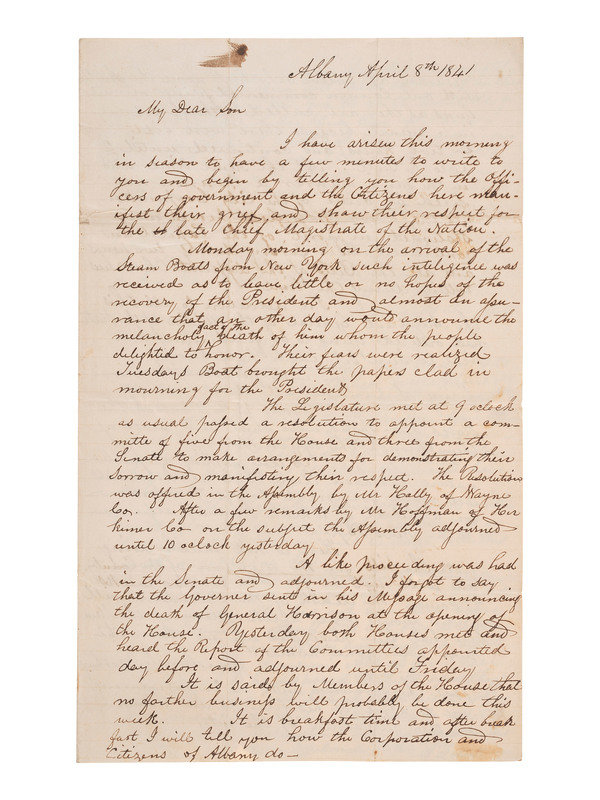 Albany April 8th 1841
My Dear Son
I have arisen this morning
in season to have a few minutes to write to
you and begin by telling you how the Offi-
cers of government and the Citizens here man-
ifest their grief and shaw their respect for
the late Chief Magistrate of the Nation.
Monday morning on the arrival of the
Steam Boats from New York such inteligence was
received as to leave little or no hopes of the
recovery of the President and almost an assu-
rance that an other day would announce the
melancholy fact of the death of him whom the people
delighted to honor. Their fears were realized
Tuesdays Boat brought the papers clad in
mourning for the President
The Legislature met at 9 oclock
as usual passed a resolution to appoint a com-
mitte of five from the House and three from the
Senate to make arrangements for demonstrating their
sorrow and manifesting their respect. The Resolution
was offired in the Assembly by Mr Holly of Wayne
Co. After a few remarks by Mr Hoffman of Her-
kimer Co on the subject the Assembly adjourned
until 10 oclock yesterday
A like proceeding was had
in the Senate and adjourned. I forgot to say
that the Governer sent in his Message announcing
the death of General Harrison at the opening of
the House. Yesterday both Houses met and
heard the Report of the Committees appointed
day before and adjourned until Friday
It is said by Members of the House that
no farther business will probably be done this
week. It is breakfast time and after break
fast I will tell you how the Corporation and
Citizens of Albany do—